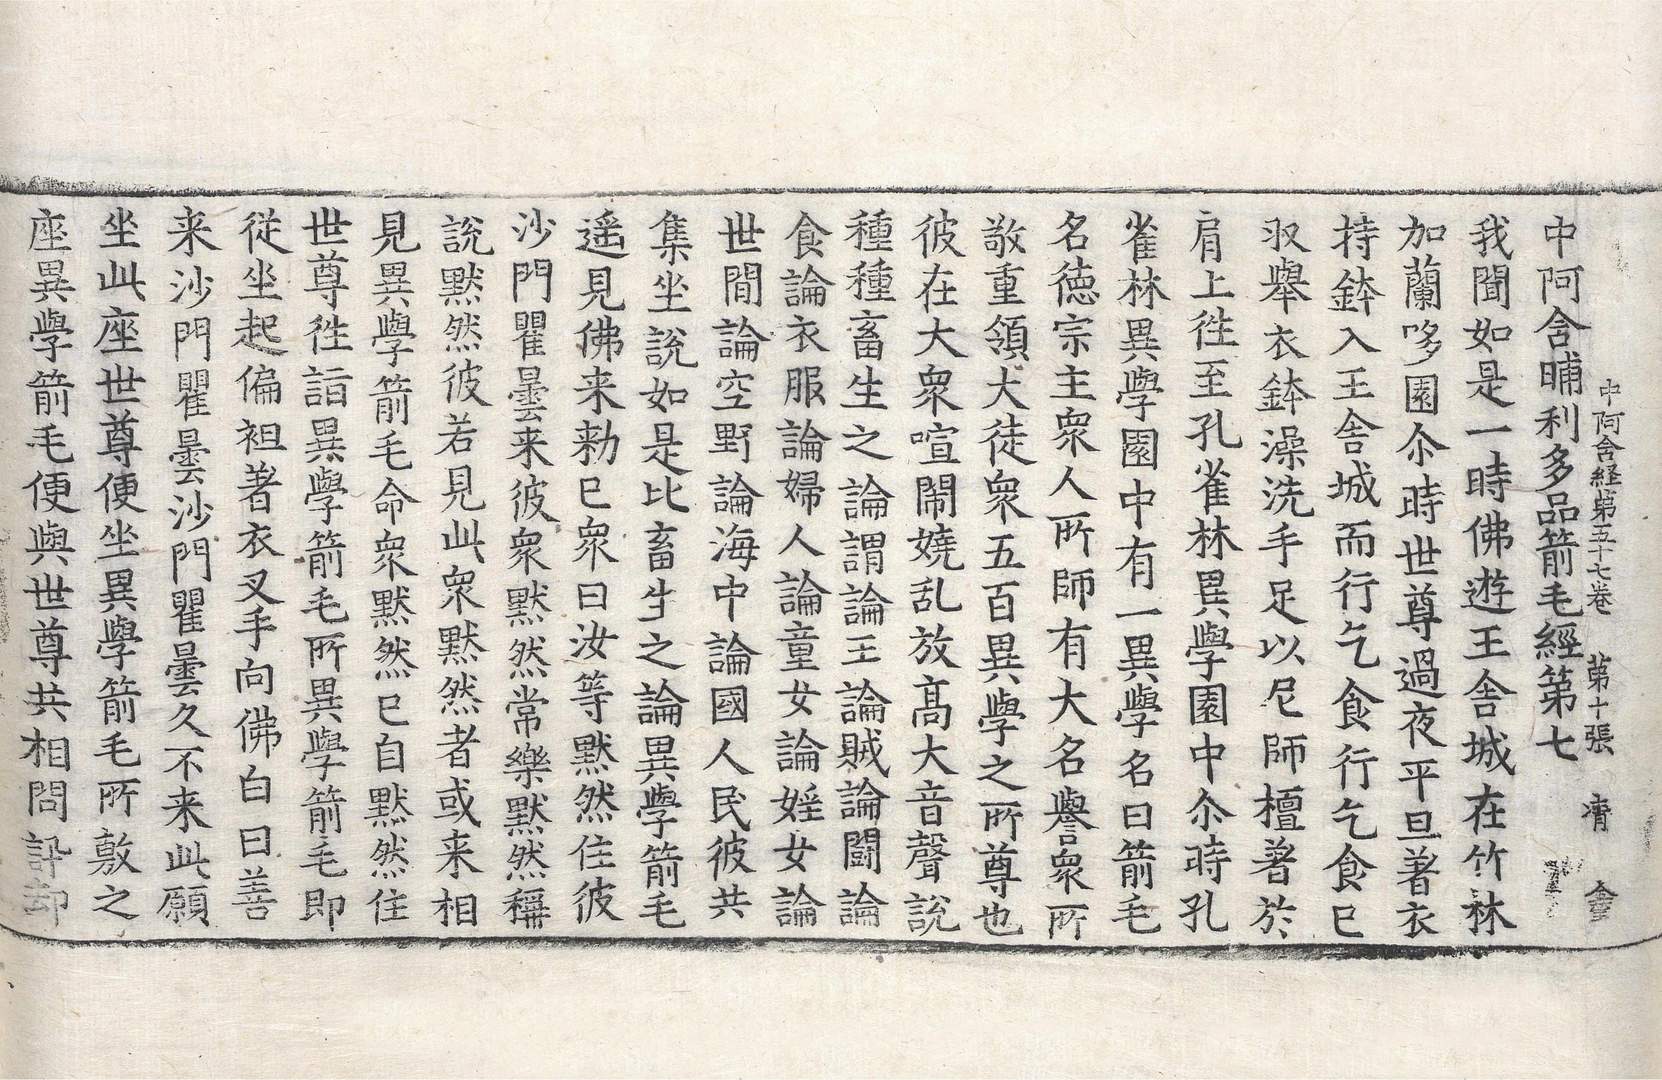 中阿含経第五十七卷 第十張 育 侖
中阿含晡利多品箭毛經第七
我聞如是一時佛遊王舍城在竹林
加蘭哆園尒時世尊過夜平旦著衣
持鉢入王舍城而行乞食行乞食已
収舉衣鉢澡洗手足以尼師檀著於
肩上徃至孔雀林異學園中尒時孔
雀林異學園中有一異學名曰箭毛
名德宗主衆人所師有大名譽衆所
敬重領大徒衆五百異學之所尊也
彼在大衆喧閙嬈乱放髙大音聲說
種種畜生之論謂論王論賊論鬪論
食論衣服論婦人論童女論婬女論
世間論空野論海中論國人民彼共
集坐說如是比畜生之論異學箭毛
遥見佛来勑已衆曰汝等默然住彼
沙門瞿曇来彼衆默然常樂默然稱
說默然彼若見此衆默然者或来相
見異學箭毛命衆默然已自默然住
世尊徃詣異學箭毛所異學箭毛即
從坐起偏袒著衣叉手向佛白曰善
来沙門瞿曇沙門瞿曇久不来此願
坐此座世尊便坐異學箭毛所敷之
座異學箭毛便與世尊共相問訊却